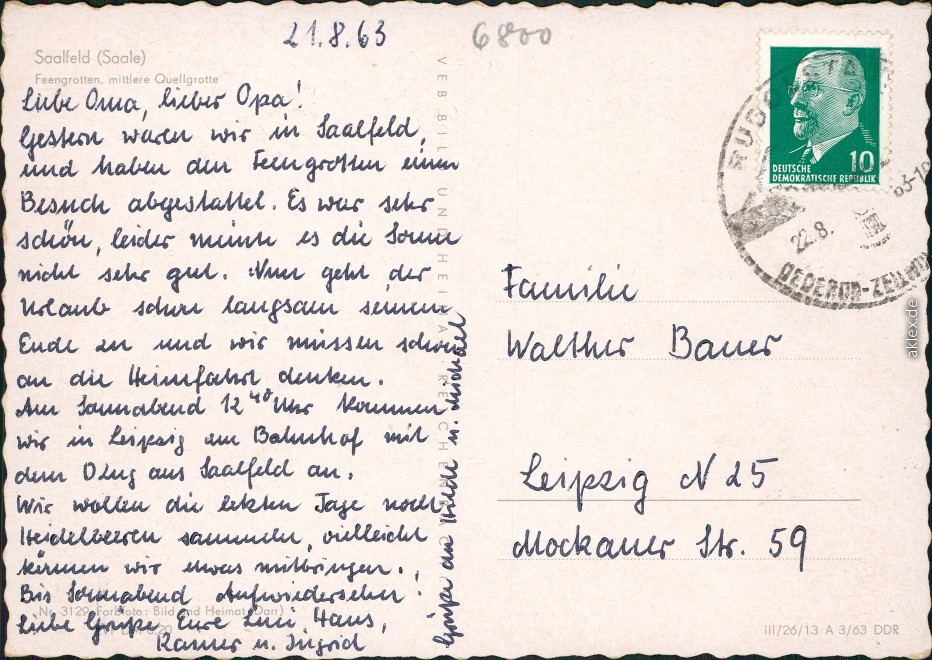 21.8.63
6800
Saalfeld (Saale)
Feengrotten, mittlere Quellgrotte
Liebe Oma, lieber Opa!
Gestern waren wir in Saalfeld,
und haben den Feengrotten einen
Besuch abgestattet. Es war sehr
schön, leider meinte es die Sonne
nicht sehr gut. Nun geht der
Urlaub schon langsam seinem
Ende zu und wir müssen schon
an die Heimfahrt denken.
Am Sonnabend 12 40 Uhr kommen
wir in Leipzig am Bahnhof mit
dem D Zug aus Saalfeld an.
Wir wollen die letzten Tage noch
Heidelbeeren sammeln, vielleicht
können wir etwas mitbringen.
Bis Sonnabend Aufwiedersehen!
Liebe Grüße Eure Hans,
Rainer u. Ingrid
Grüße an u. Michael
Nr. 3129 Farbfoto: Bild und Heimat (Darr)
VEB BILD UND HEIMAT REICHENBACH
DEUTSCHE
DEMOKRATISCHE REPUBLIK
10
RUDOLSTADT
22.8.63-18
DEDERON-ZELLWO
Familie
Walther Bauer
Leipzig N 25
Mockauer Str. 59
III/26/13 A 3/63 DDR
aklex.de